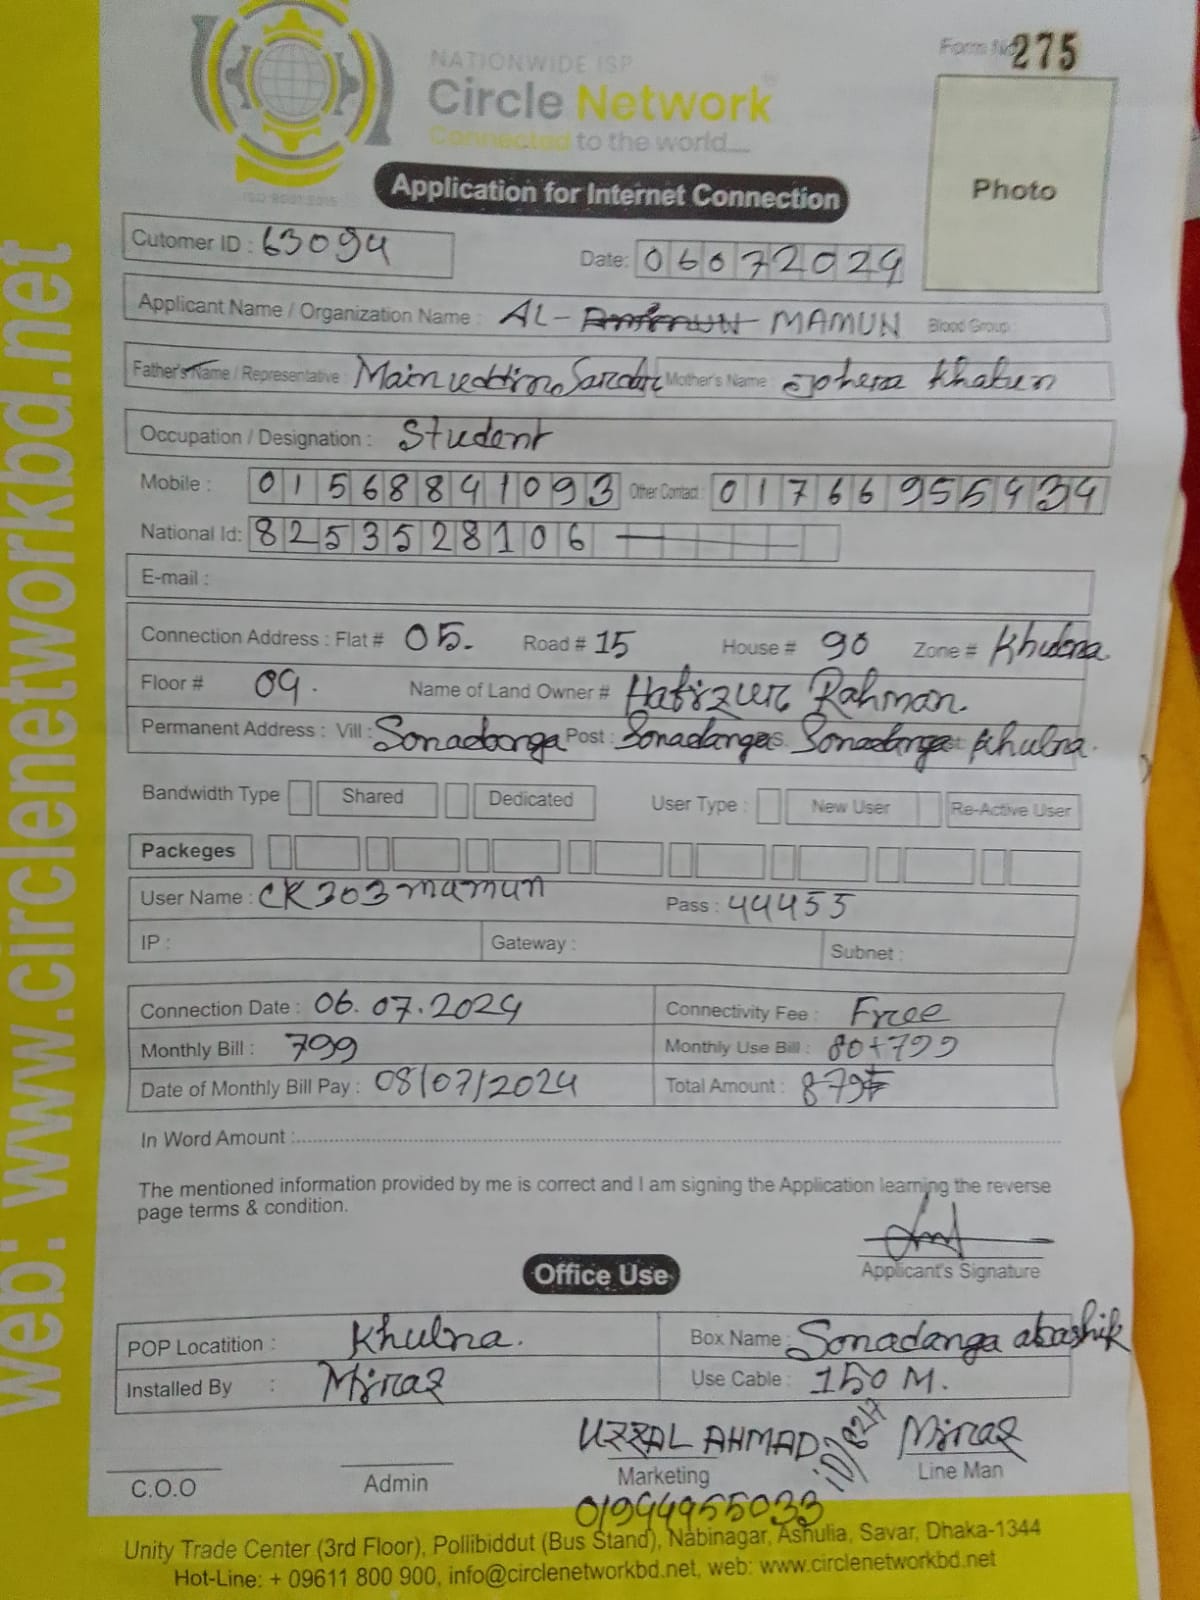 NATIONWIDE ISP
Circle Network
Connected to the world....
ISO 9001:2015
Form No 275
Photo
Application for Internet Connection
Cutomer ID : 63094
Date: 06072024
Applicant Name / Organization Name : AL- MAMUN Blood Group :
Father's Name / Representative : Mainuddin Sardar Mother's Name : Johera Khatun
Occupation / Designation : Student
Mobile : 01568841093 Other Contact : 01766955434
National Id: 8253528106
E-mail :
Connection Address : Flat # 05. Road # 15 House # 90 Zone # Khulna
Floor # 09. Name of Land Owner # Hafizur Rahman.
Permanent Address : Vill : Sonadanga Post : Sonadanga Sonadanga Khulna.
Bandwidth Type Shared Dedicated User Type : New User Re-Active User
Packeges
User Name : CK303mamun Pass : 44455
IP : Gateway : Subnet :
Connection Date : 06.07.2024 Connectivity Fee : Free
Monthly Bill : 799 Monthly Use Bill : 80+799
Date of Monthly Bill Pay : 08/07/2024 Total Amount : 879
In Word Amount :
The mentioned information provided by me is correct and I am signing the Application learning the reverse
page terms & condition.
Applicant's Signature
Office Use
POP Locatition : Khulna. Box Name : Sonadanga abashik
Installed By : Miraz Use Cable : 150 M.
UZZAL AHMAD Miraz
C.O.O Admin Marketing Line Man
01944955033
Unity Trade Center (3rd Floor), Pollibiddut (Bus Stand), Nabinagar, Ashulia, Savar, Dhaka-1344
Hot-Line: + 09611 800 900, info@circlenetworkbd.net, web: www.circlenetworkbd.net
web: www.circlenetworkbd.net